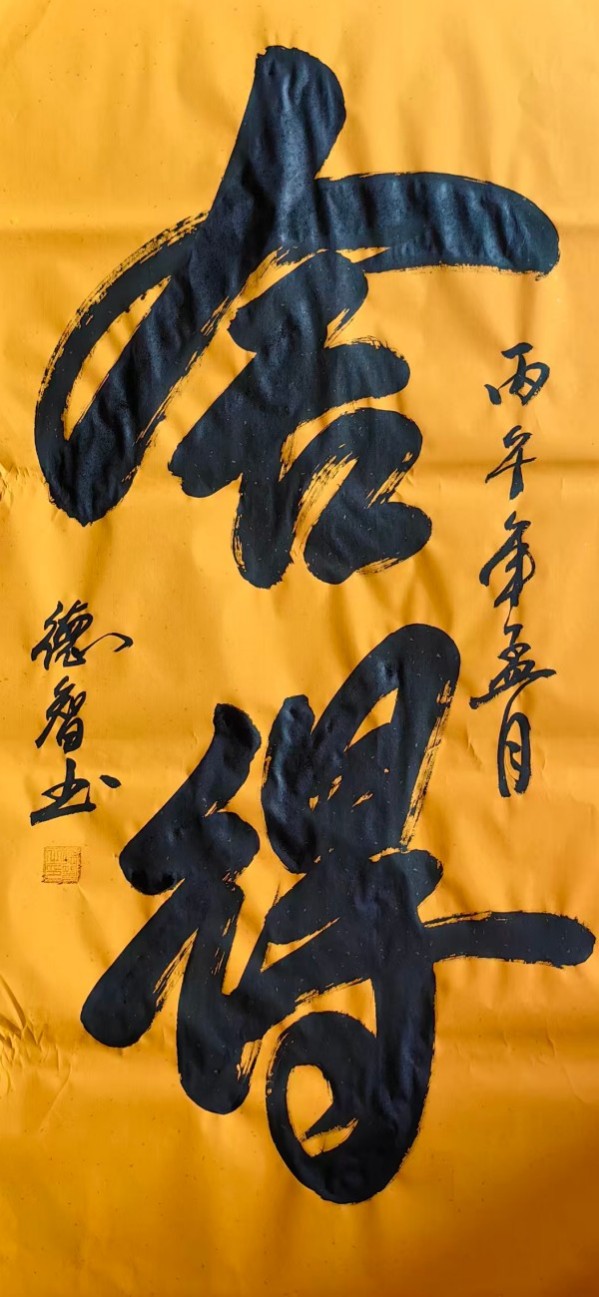 舍得
丙午年孟月
德智书